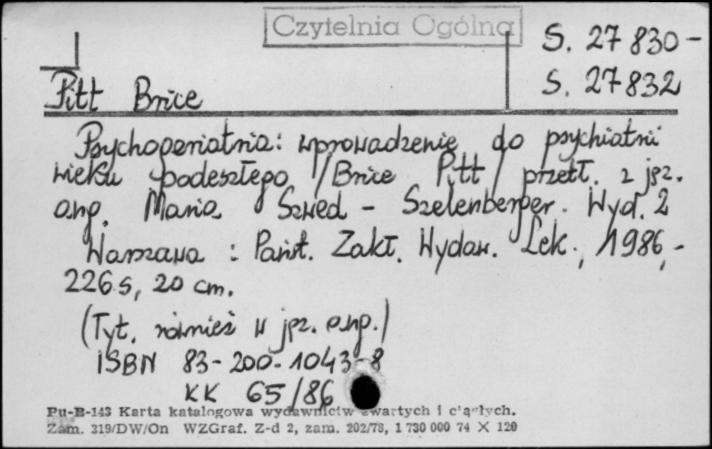 Czytelnia Ogólna
S. 27 830 -
S. 27 832
Pitt Brice
Psychogeriatria: wprowadzenie do psychiatrii
wieku podeszłego / Brice Pitt / przetł. z jęz.
ang. Maria Szwed - Szelenberger. Wyd. 2
Warszawa : Państ. Zakł. Wydaw. Lek., 1986, -
226 s, 20 cm.
(Tyt. również w jęz. ang.)
ISBN 83-200-1043-8
KK 65/86
Pu-B-143 Karta katalogowa wydawnictw zwartych i ciągłych.
Zam. 319/DW/On WZGraf. Z-d 2, zam. 202/78, 1 730 000 74 X 120